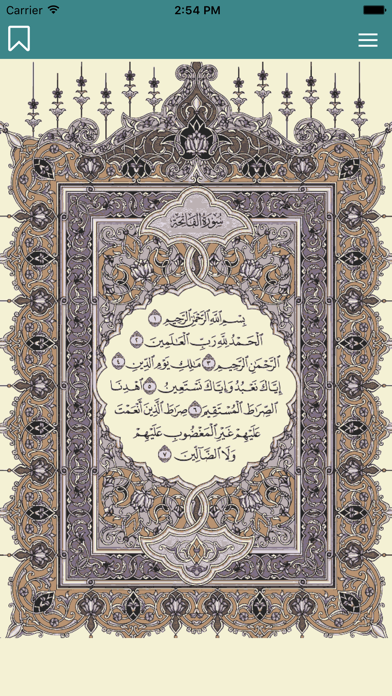 Carrier 2:54 PM
سُورَةُ الْفَاتِحَةِ
بِسْمِ اللَّهِ الرَّحْمَٰنِ الرَّحِيمِ ١
الْحَمْدُ لِلَّهِ رَبِّ الْعَالَمِينَ ٢
الرَّحْمَٰنِ الرَّحِيمِ ٣ مَالِكِ يَوْمِ الدِّينِ ٤
إِيَّاكَ نَعْبُدُ وَإِيَّاكَ نَسْتَعِينُ ٥ اهْدِنَا
الصِّرَاطَ الْمُسْتَقِيمَ ٦ صِرَاطَ الَّذِينَ أَنْعَمْتَ
عَلَيْهِمْ غَيْرِ الْمَغْضُوبِ عَلَيْهِمْ
وَلَا الضَّالِّينَ ٧